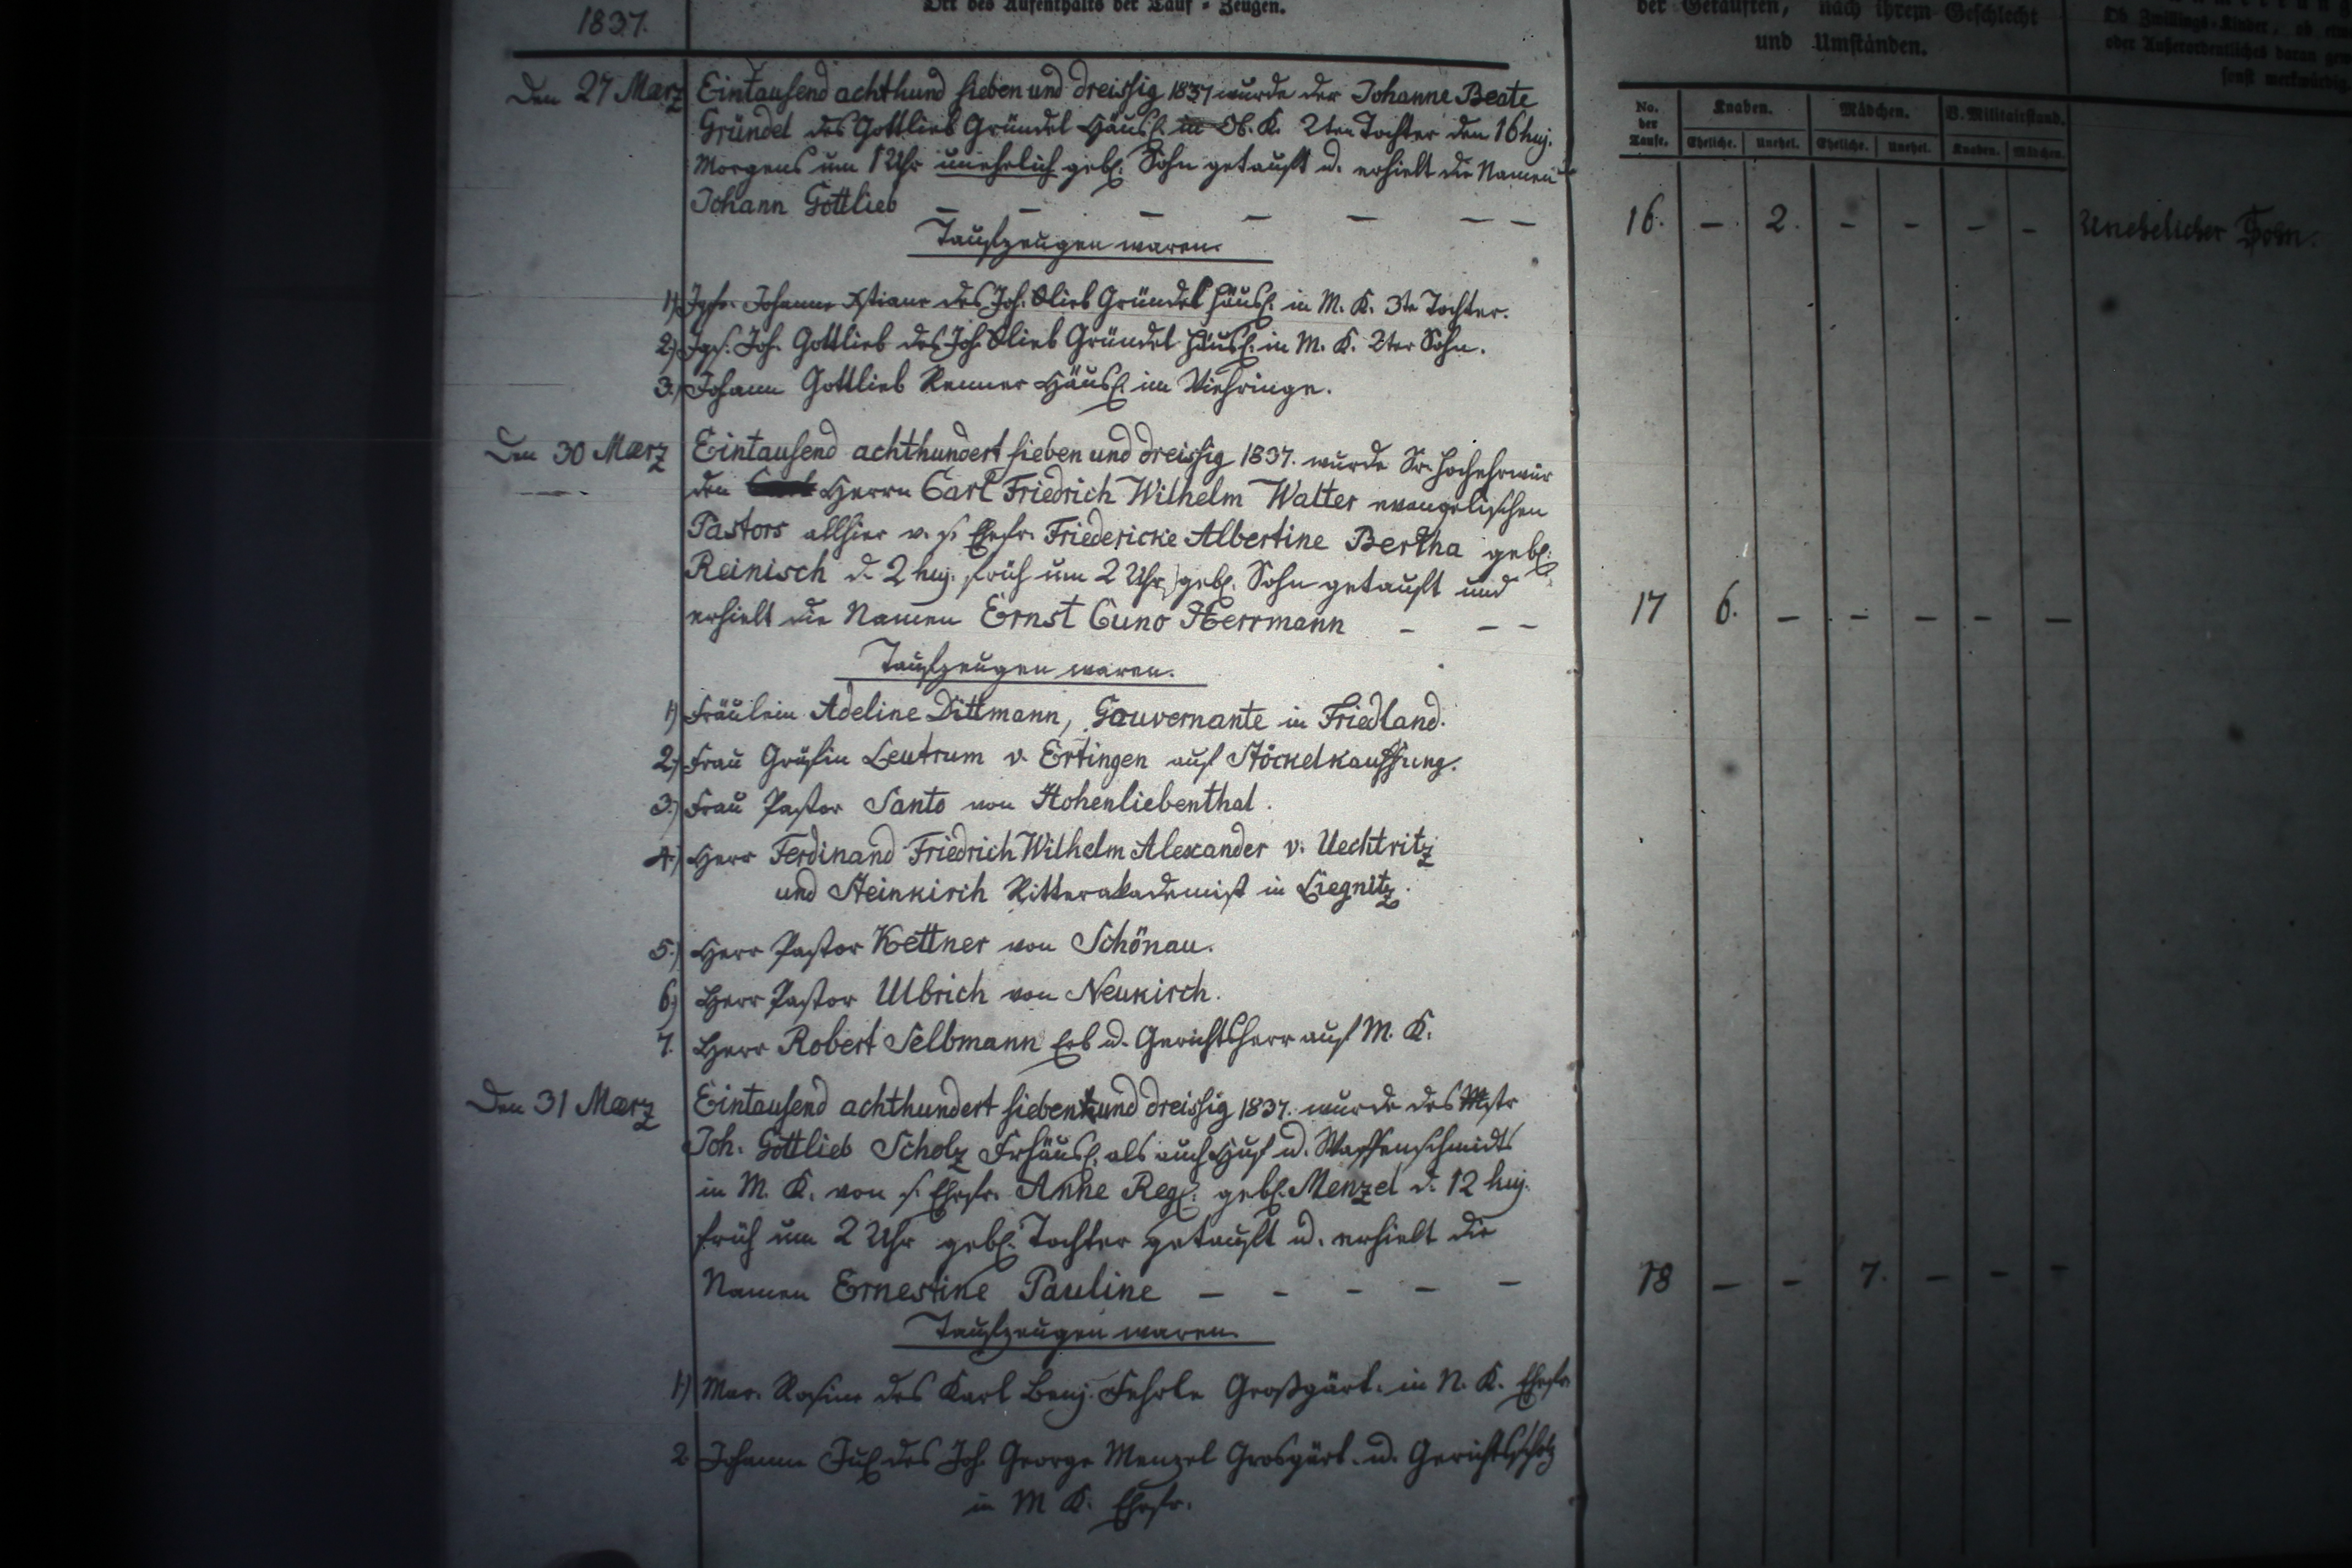 1837.
Ort des Aufenthalts der Tauf-Zeugen.
der Getauften, nach ihrem Geschlecht
und Umständen.
Ob Zwillings-Kinder, ob
oder Außerordentliches daran
sonst merkwürdig
No. der Taufe.
Knaben.
Mädchen.
B. Militairstand.
Eheliche. Unehel. Eheliche. Unehel. Knaben. Mädchen.
Den 27 Maerz
Eintausend achthund sieben und dreissig 1837 wurde der Johanne Beate
Gründel des Gottlieb Gründel Häusl. in Ob. K. 2ten Tochter den 16 huj.
Morgens um 1 Uhr unehelich gebl. Sohn getauft u. erhielt die Namen
Johann Gottlieb – – – – – – –
16. – 2. – – – – Unehelicher Sohn.
Taufzeugen waren.
1) Jgfr. Johanne Xstiane des Joh. Glieb Gründel Häusl. in M. K. 3te Tochter.
2) Jgs. Joh. Gottlieb des Joh. Glieb Gründel Häusl. in M. K. 2ter Sohn.
3.) Johann Gottlieb Renner Häusl. im Viehringe.
Den 30 Maerz
Eintausend achthundert sieben und dreissig 1837. wurde Sr. Hochehrwür
den Herrn Carl Friedrich Wilhelm Walter evangelischen
Pastors allhier v. s. Ehefr. Friedericke Albertine Bertha gebl.
Reinisch d. 2 huj. früh um 2 Uhr gebl. Sohn getauft und
erhielt die Namen Ernst Cuno Herrmann – – –
17 6. – – – – –
Taufzeugen waren.
1) Fräulein Adeline Dittmann, Gouvernante in Friedland.
2.) Frau Gräfin Leutrum v. Ertingen auf Stöckelkauffung.
3.) Frau Pastor Santo von Hohenliebenthal.
4.) Herr Ferdinand Friedrich Wilhelm Alexander v. Uechtritz
und Steinkirch Ritterakademist in Liegnitz.
5.) Herr Pastor Kettner von Schönau.
6.) Herr Pastor Ulbrich von Neukirch.
7. Herr Robert Selbmann Erb u. Gerichtsherr auf M. K.
Den 31 Maerz
Eintausend achthundert sieben und dreissig 1837. wurde des Mstr
Joh. Gottlieb Scholz Frhäusl. als auch Huf u. Waffenschmidts
in M. K. von s. Ehefr. Anne Regl. gebl. Menzel d. 12 huj.
früh um 2 Uhr gebl. Tochter getauft u. erhielt die
Namen Ernestine Pauline – – – – –
18 – – 7. – – –
Taufzeugen waren.
1.) Mar. Rosine des Karl Benj. Fehrle Großgärt. in N. K. Ehefr.
2. Johanne Jul. des Joh. George Menzel Grosgärt. u. Gerichtsscholz
in M K. Ehefr.